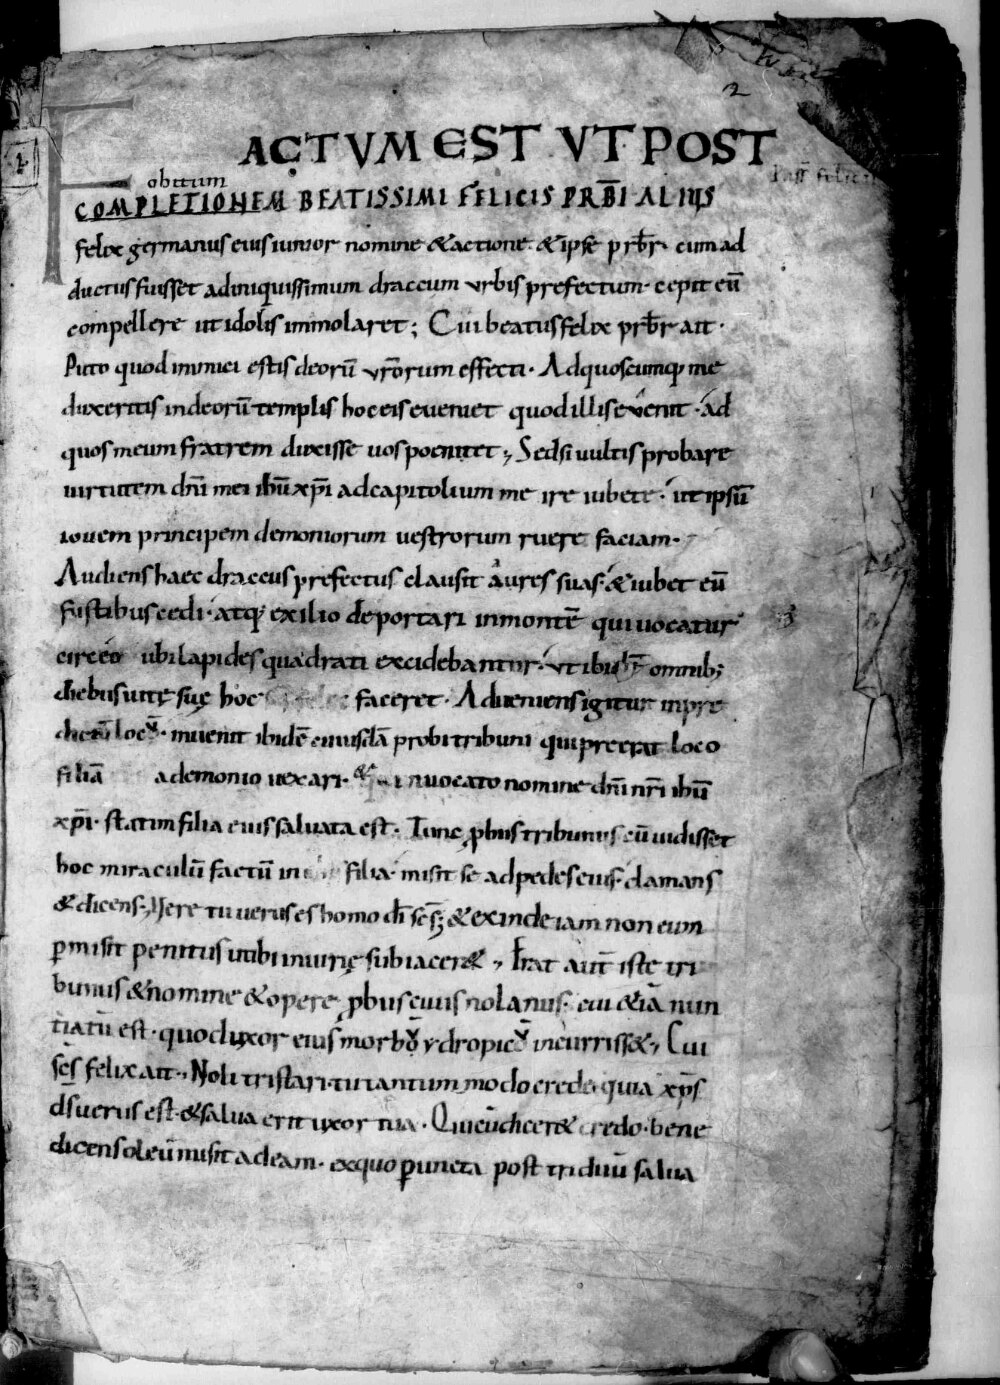 2
FACTVM EST VT POST
obitum
COMPLETIONEM BEATISSIMI FELICIS PRB̅I ALIUS
felix germanus eius iunior nomine &actione· &ipse prb̅r· cum ad
ductus fuisset adiniquissimum draccum urbis prefectum· cepit eū
compellere ut idolis immolaret; Cui beatus felix prb̅r ait·
Puto quod inimici estis deorū vr̅orum effecti· Adquoscumq; me
duxeritis indeorū templis hoc eis eveniet quod illis evenit· ad
quos meum fratrem duxisse uos poenitet; Sed si uultis probare
uirtutem dn̅i mei ihū xp̅i adcapitolium me ire iubete· ut ipsū
iouem principem demoniorum uestrorum ruere faciam·
Audiens haec draccus prefectus clausit aures suas· & iubet eū
fustibus cedi· atq; exilio deportari inmontē qui uocatur
circeo ubi lapides quadrati excidebantur· ut ibi omnib;
diebus uitę suę hoc faceret· Adueniens igitur inpre
dictū locū· inuenit ibidē cuiusdā probi tribuni qui preerat loco
filiā ademonio uexari· inuocato nomine dn̅i nr̅i ihū
xp̅i· statim filia eius saluata est· Tunc ꝓbus tribunus cū uidisset
hoc miraculū factū in filia· misit se adpedes eius· clamans
&dicens· Vere tu uerus es homo dī sc̅s; & exinde iam non eum
ꝑmisit penitus utibi iniurię subiacer&; Erat aut̅ iste tri
bunus &nomine &opere ꝓbus ciuis nolanus· cui &iā nun
tiatū est· quod uxor eius morbo ydropico incurriss&; Cui
sc̅s felix ait; Noli tristari· tu tantum modo crede quia xp̅s
ds̅ uerus est· &salua erit uxor tua· Qui cū dicer& credo· bene
dicens oleū misit adeam· exquo ꝑuncta post triduū salua